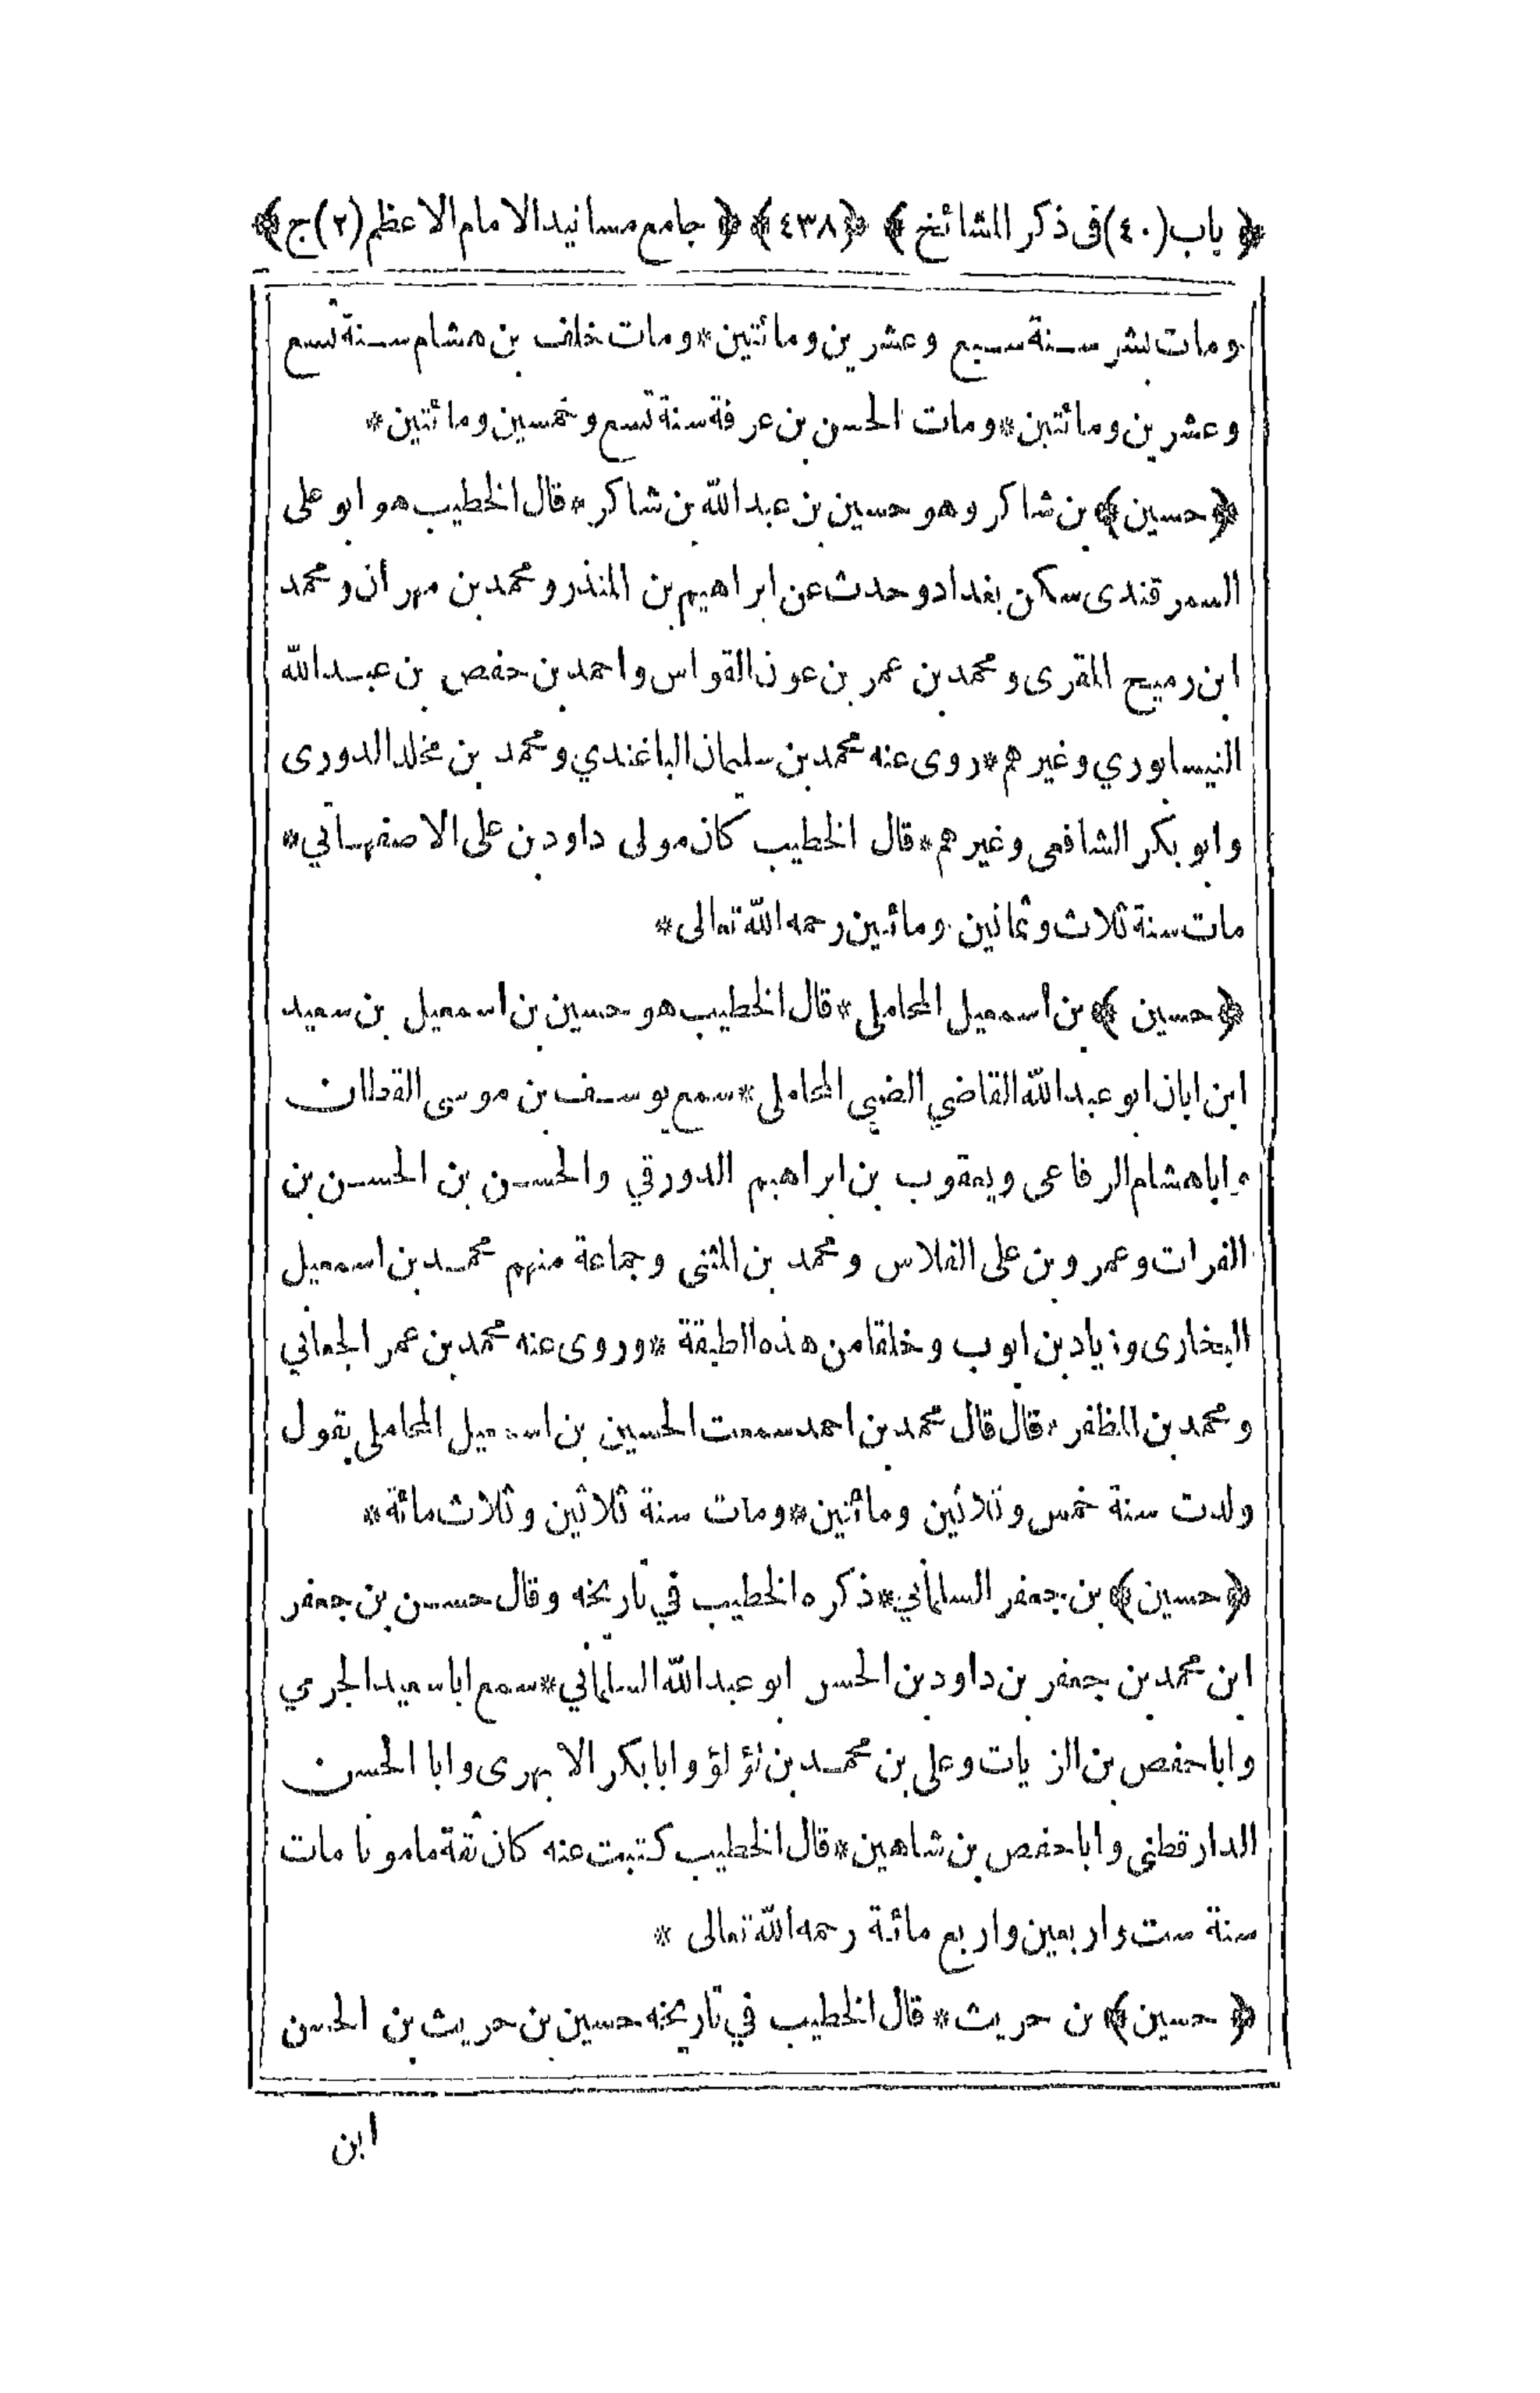 ﴿ باب (٤٠) فى ذكر المشائخ ﴾ ﴿٤٣٨﴾ ﴿ جامع مسانيد الامام الاعظم (٢) ج ﴾
ومات بشر سنة سبع وعشرين ومائتين * ومات خلف بن هشام سنة تسع
وعشرين ومائتين * ومات الحسن بن عرفة سنة تسع وخمسين ومائتين *
﴿ حسين ﴾ بن شاكر وهو حسين بن عبد الله بن شاكر * قال الخطيب هو ابو على
السمرقندى سكن بغداد وحدث عن ابراهيم بن المنذر ومحمد بن مهران ومحمد
ابن رميح المقرى ومحمد بن عمر بن عون القواس واحمد بن حفص بن عبد الله
النيسابوري وغيرهم * روى عنه محمد بن سليمان الباغندي ومحمد بن مخلد الدورى
وابو بكر الشافعى وغيرهم * قال الخطيب كان مولى داود بن على الاصفهاني *
مات سنة ثلاث وثمانين ومائتين رحمه الله تعالى *
﴿ حسين ﴾ بن اسمعيل المحاملي * قال الخطيب هو حسين بن اسمعيل بن سعيد
ابن ابان ابو عبد الله القاضي الضبي المحاملى * سمع يوسف بن موسى القطان
وابا هشام الرفاعى ويعقوب بن ابراهيم الدورقي والحسن بن الحسن بن
الفرات وعمرو بن على الفلاس ومحمد بن المثنى وجماعة منهم محمد بن اسمعيل
البخارى وزياد بن ايوب وخلقا من هذه الطبقة * وروى عنه محمد بن عمر الجعابي
ومحمد بن المظفر * قال قال محمد بن احمد سمعت الحسين بن اسمعيل المحاملي يقول
ولدت سنة خمس وثلاثين ومائتين * ومات سنة ثلاثين وثلاث مائة *
﴿ حسين ﴾ بن جعفر السلماني * ذكره الخطيب في تاريخه وقال حسين بن جعفر
ابن محمد بن جعفر بن داود بن الحسن ابو عبد الله السلماني * سمع ابا سعيد الجرمي
وابا حفص بن الزيات وعلي بن محمد بن لؤلؤ وابا بكر الابهرى وابا الحسن
الدارقطني وابا حفص بن شاهين * قال الخطيب كتبت عنه كان ثقة مامونا مات
سنة ست واربعين واربع مائة رحمه الله تعالى *
﴿ حسين ﴾ بن حريث * قال الخطيب في تاريخه حسين بن حريث بن الحسن
ابن